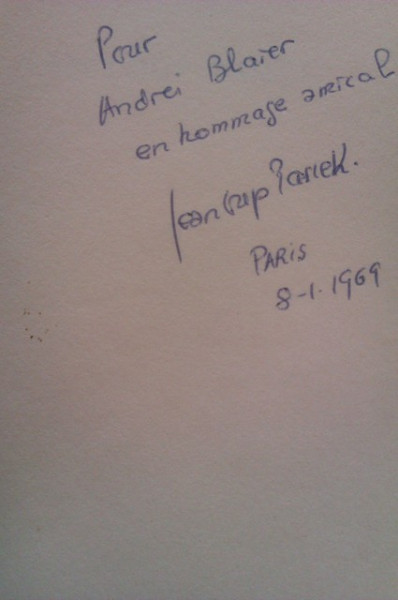 Pour
Andrei Blaier
en hommage amical
Jean Loup Passek.
PARIS
8-1-1969